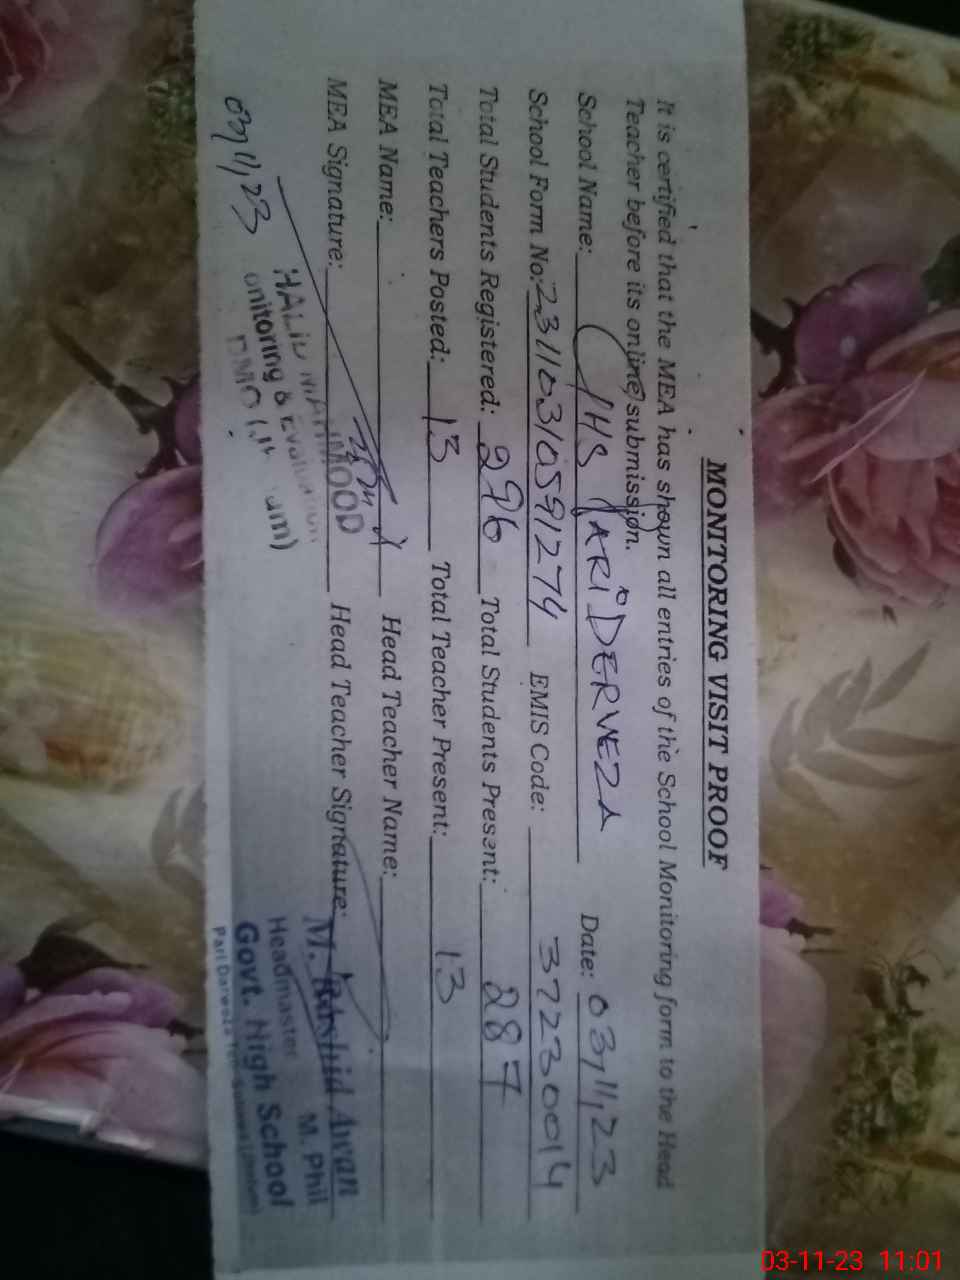 MONITORING VISIT PROOF
It is certified that the MEA has shown all entries of the School Monitoring form to the Head
Teacher before its online submission.
School Name: GHS PARI DERVEZA Date: 03/11/23
School Form No: 23110310591274 EMIS Code: 37230014
Total Students Registered: 296 Total Students Present: 287
Total Teachers Posted: 13 Total Teacher Present: 13
MEA Name: Head Teacher Name:
MEA Signature: Head Teacher Signature:
03/11/23
MOOD
onitoring & Evaluation
M. Rashid Awan
M. Phil
Headmaster
Govt. High School
03-11-23 11:01